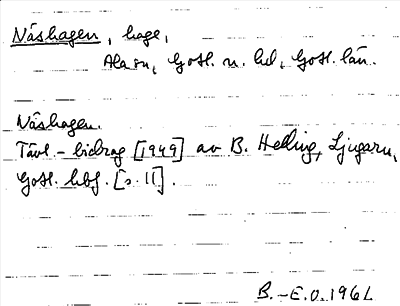 Näshagen, hage,
Ala sn, Gotl. n. hd, Gotl. län.
Näshagen.
Tävl.-bidrag [1949] av B. Helling, Ljugarn,
Gotl. hbf. [s. 11].
B.-E.O. 1961